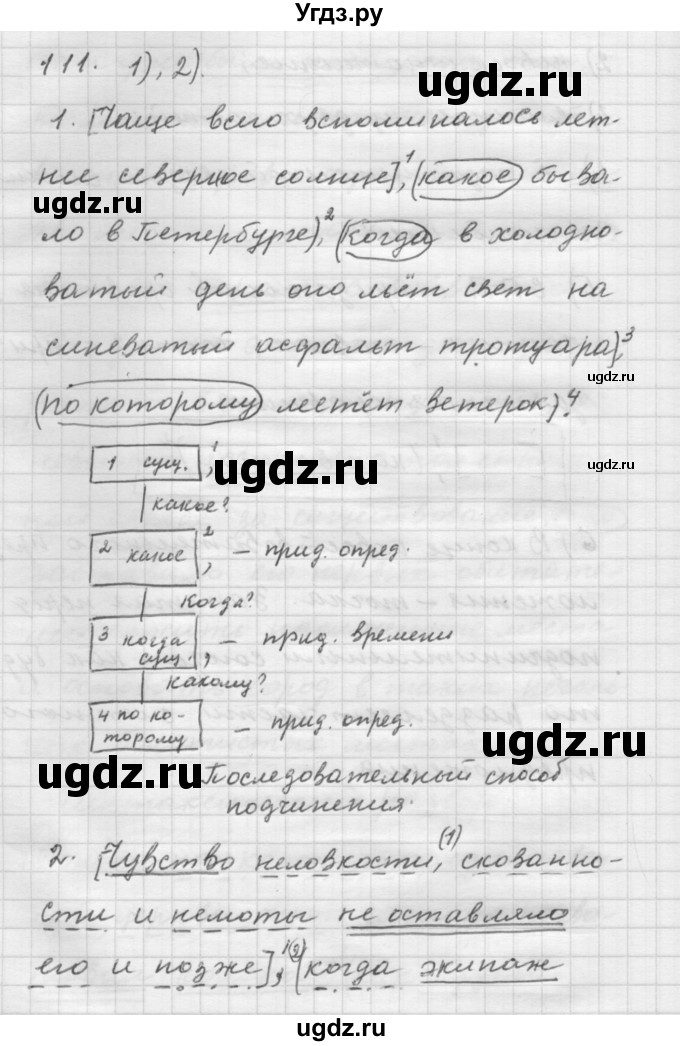 Угдз.ру
111. 1), 2).
ugdz.ru
1. [Чаще всего вспоминалось лет-
нее северное солнце],¹ (какое) быва-
ugdz.ru
ло в Петербурге),² (когда) в холодно-
ватый день оно льёт свет на
синеватый асфальт тротуара),³
ugdz.ru
(по которому) летет ветерок).⁴
1 сущ. ,¹
ugdz.ru
ugdz.ru
какое?
2 какое ,² – прид. опред.
когда?
3 когда сущ. , – прид. времени
какому?
4 по ко-
торому – прид. опред.
ugdz.ru
Последовательный способ
подчинения.
ugdz.ru
2. [Чувство неловкости,(1) скованно-
сти и немоты не оставляло
его и позже],¹(2) (когда экипаж
ugdz.ru